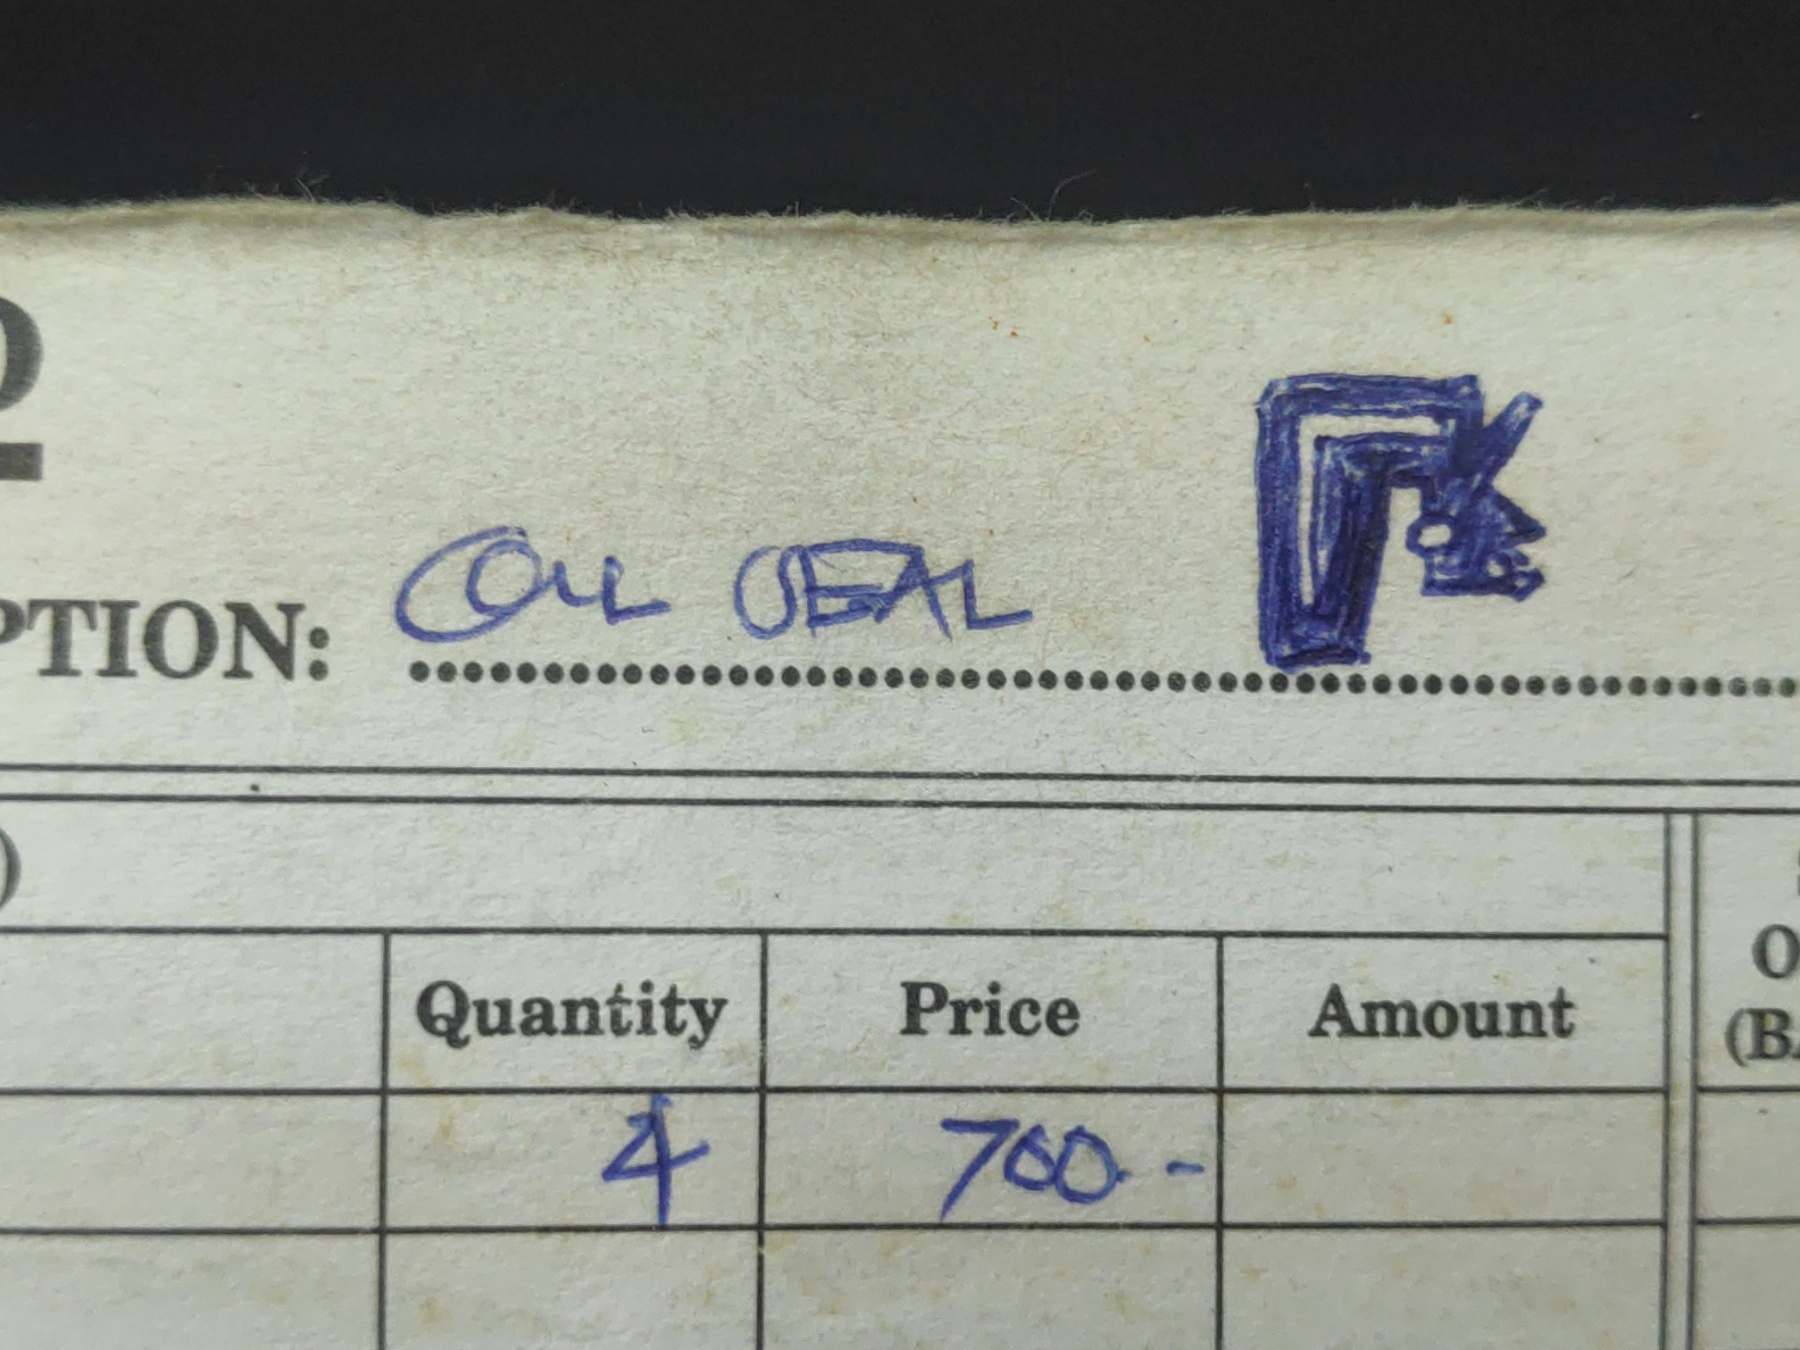 PTION: OIL SEAL
Quantity Price Amount
4 700.-